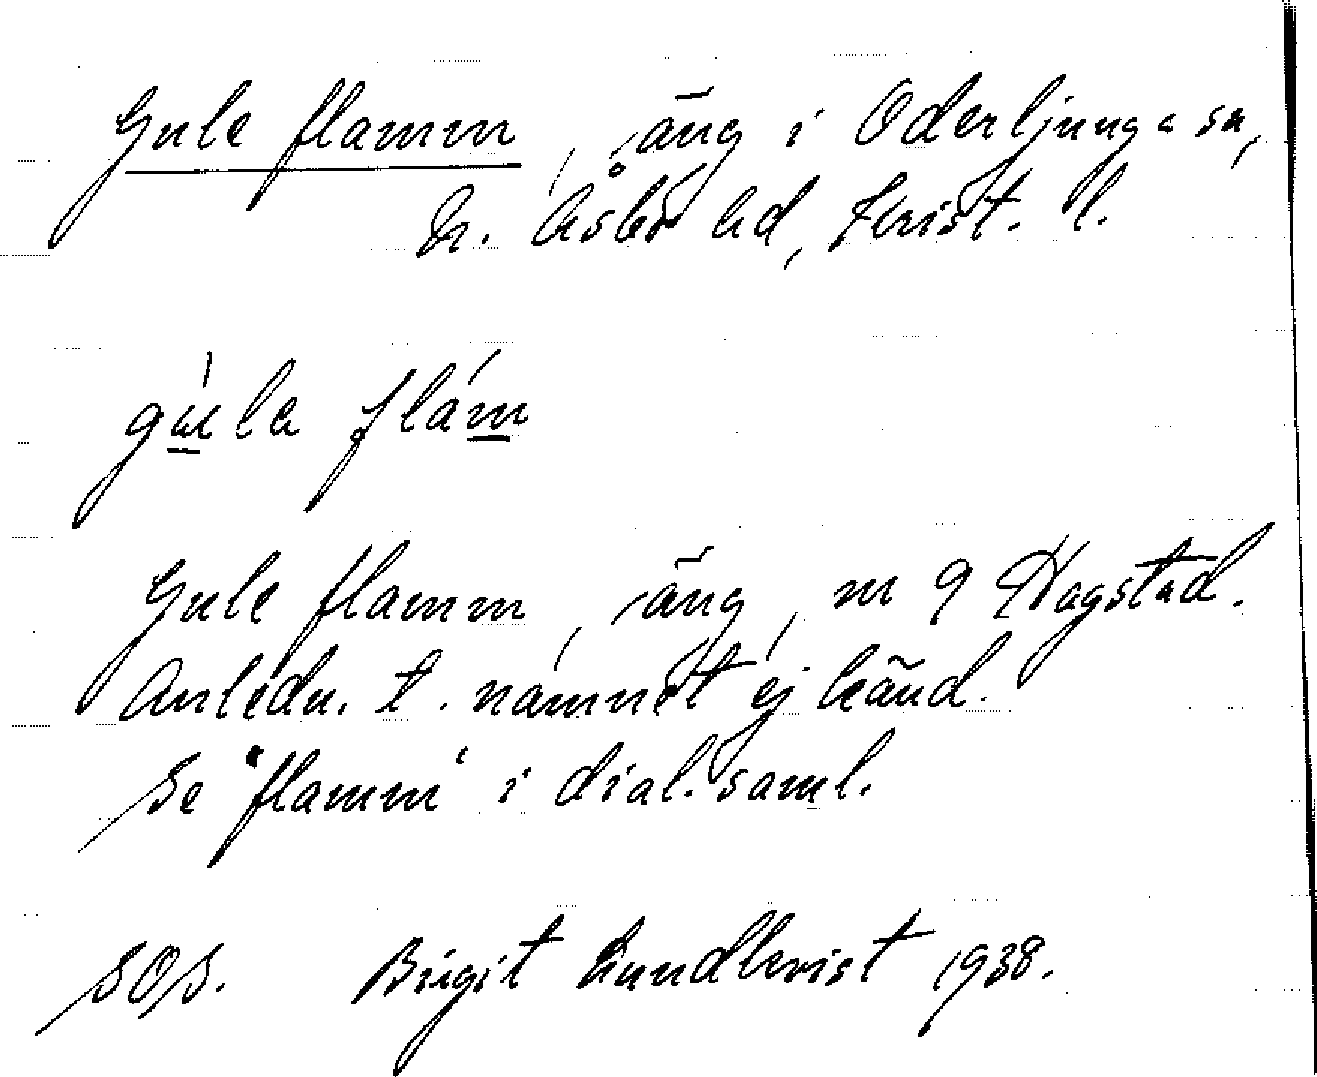 Gule flamm, äng i Oderljunga sn,
N. Åsbo hd, Krist. l.
gúla flám
Gule flamm, äng, nr 9 Hagstad.
Anledn. t. namnet ej känd.
Se "flamm" i dial. saml.
SOS. Birgit Lundkvist 1938.